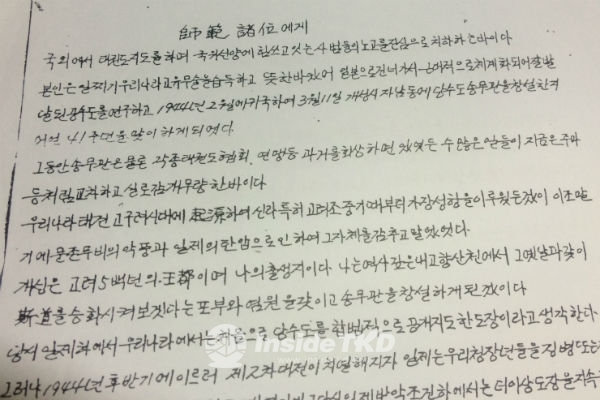 師範 諸位에게
국외에서 태권도지도를 하며 국위선양에 힘쓰고 있는 사범들의 노고를 진심으로 치하하는 바이다
본인은 일찌기 우리나라 고유무술을 습득하고 뜻한바 있어 일본으로 건너가서 체계화되어 발
달된 공수도를 연구하고 1944년 2월에 귀국하여 3월 11일 개성시 자남동에 당수도 송무관을 창설한지
어언 41주년을 맞이하게 되었다.
그동안 송무관은 물론 각종 태권도협회, 연맹등 과거를 회상하면 있었든 수많은 일들이 지금은 주마
등처럼 교차하고 실로 감개무량한 바이다
우리나라 태권 고구려시대에 起源하여 신라 특히 고려조 중기때부터 가장 성함을 이루웟든것이 이조말
기에 문존무비의 악풍과 일제의 탄압으로 인하여 그 자체를 감추고 말았었다.
개성은 고려 5백년의 王都이며 나의 출생지이다. 나는 역사깊은 내고향산천에서 그 옛날과 같이
斯道를 승화시켜 보겠다는 포부와 염원을 갖이고 송무관을 창설하게 된것이다
당시 일제하에서 우리나라에서는 처음으로 당수도를 합법적으로 공개지도한 도장이라고 생각한다.
그러나 1944년 후반기에 이르러 제2차대전이 치열해지자 일제는 우리 청장년들을 징병 또는
제반 악조건하에서는 더이상 도장을 지속
InsideTKD